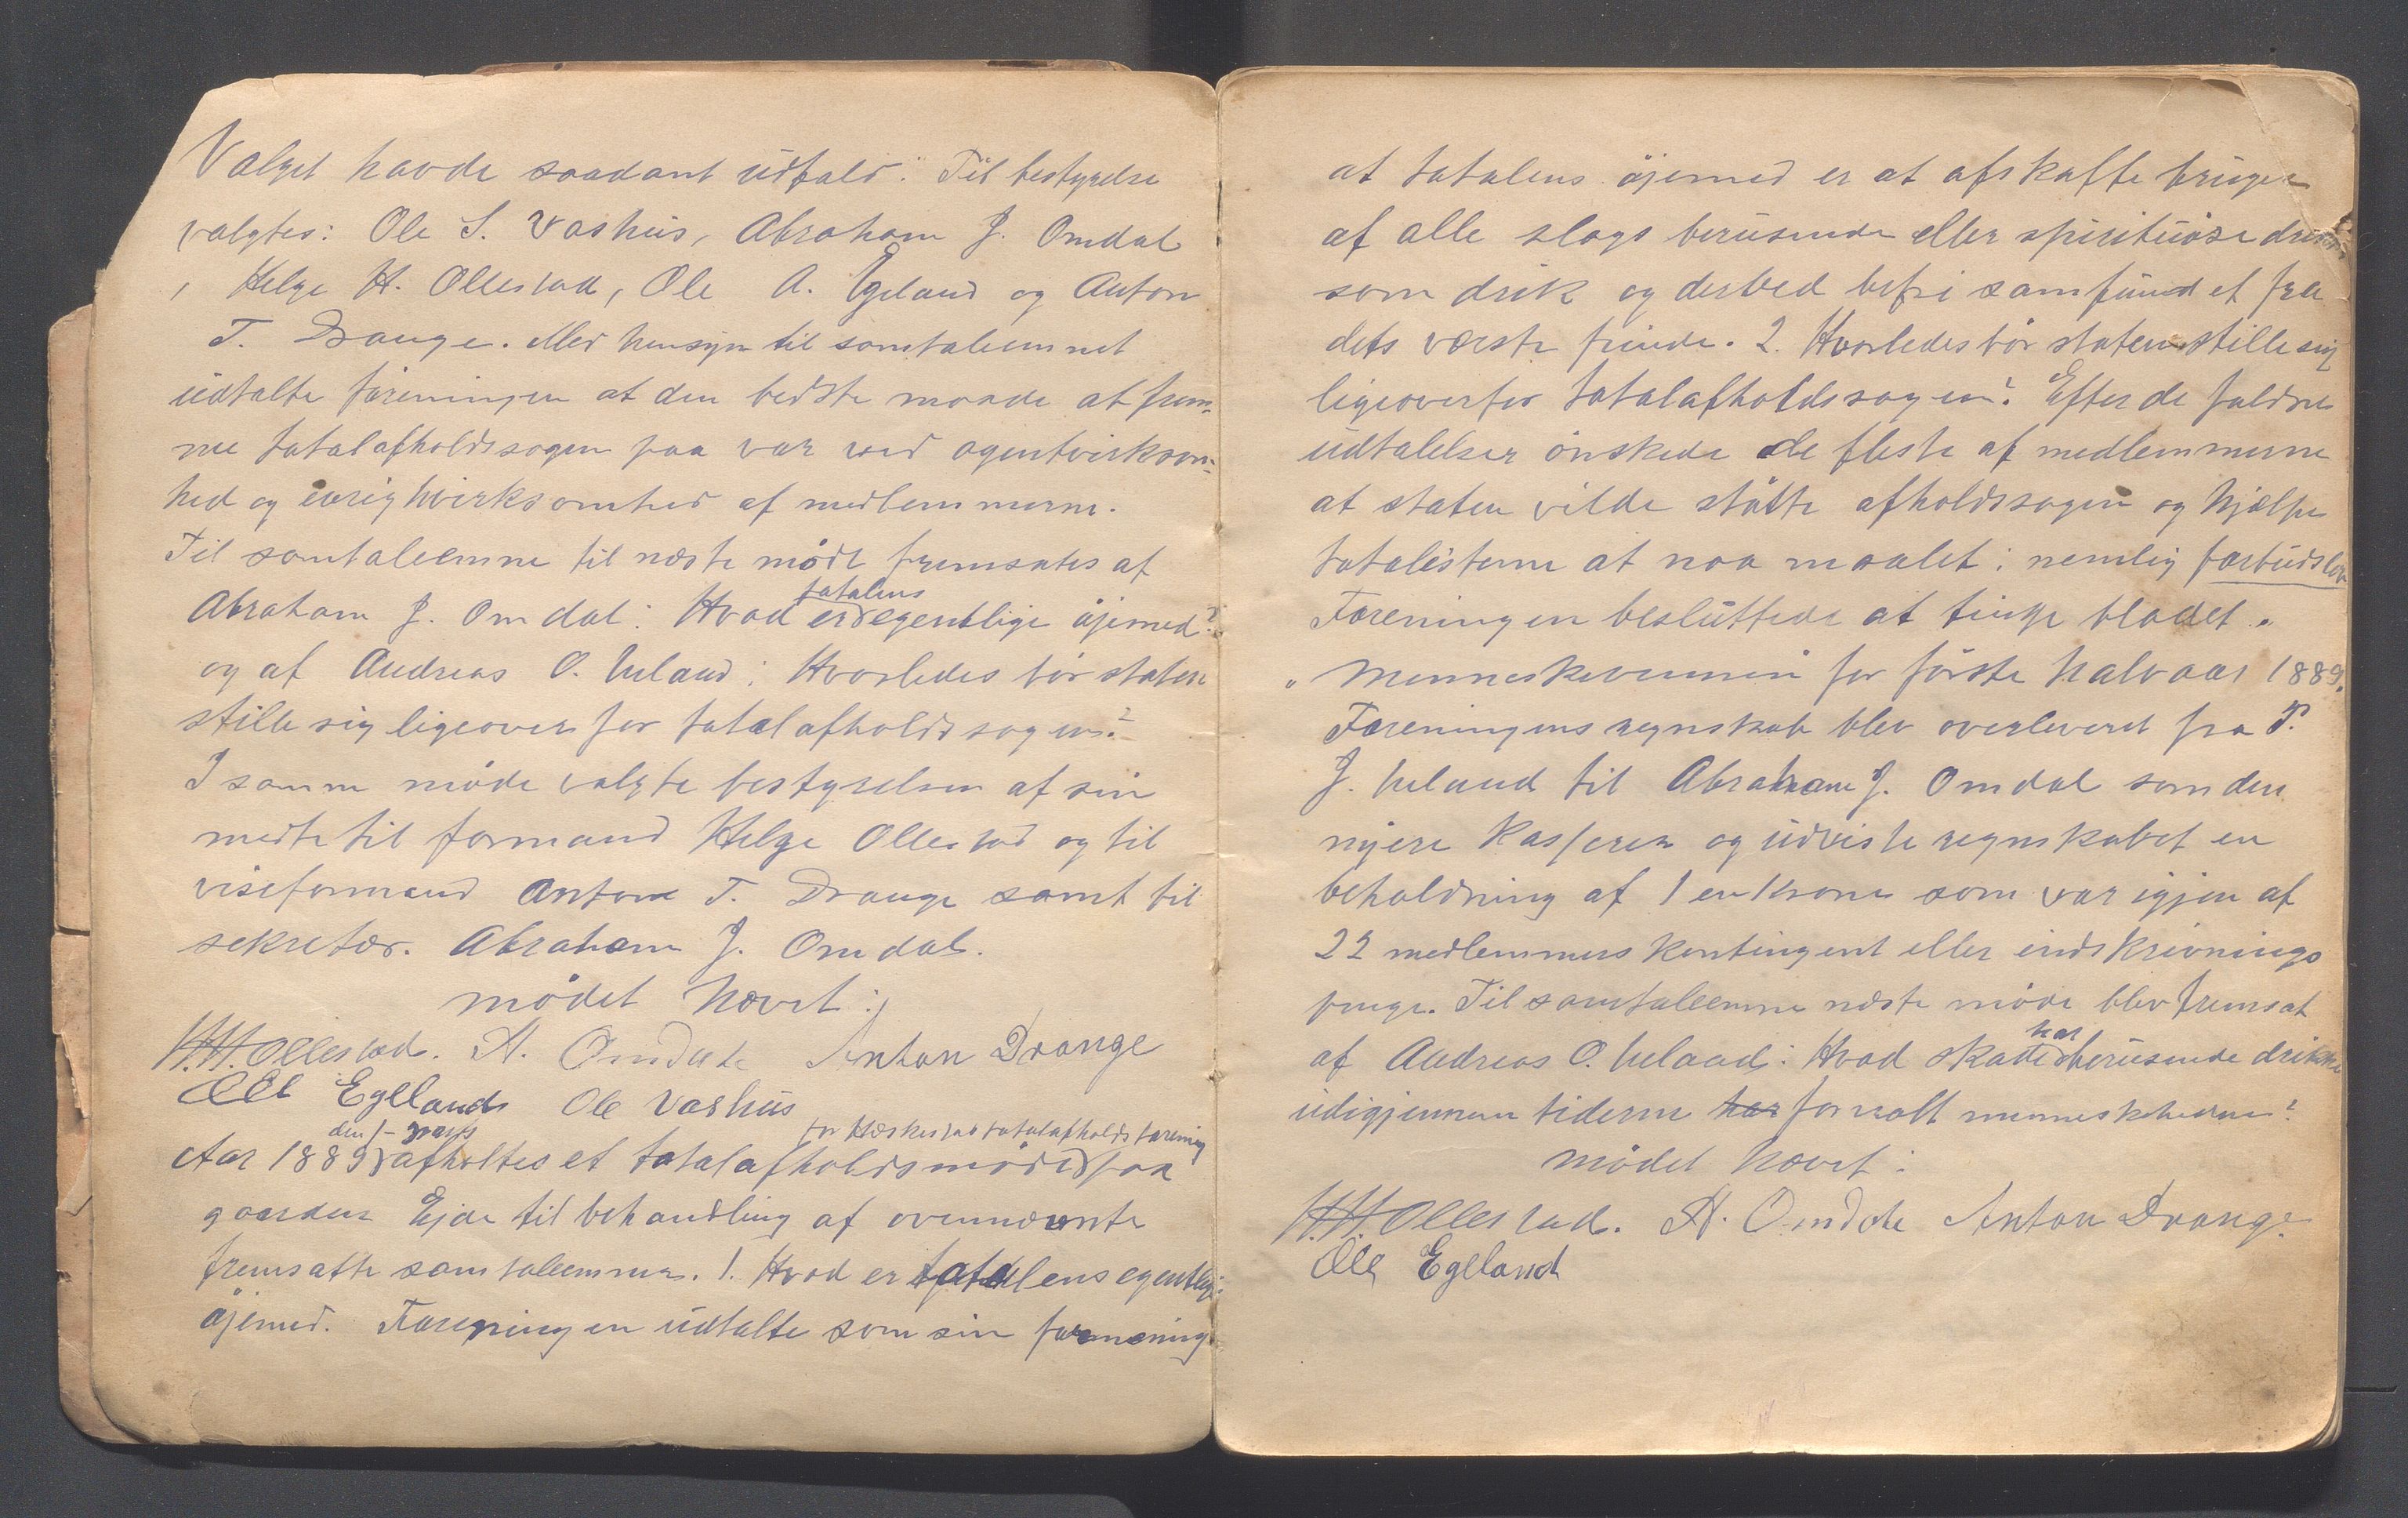 Valget havde saadant udfald: Til bestyrelse
valgtes: Ole S. Vashus, Abraham J. Omdal
, Helge H. Ollestad, Ole A. Egeland og Anton
T. Drange. Med hensyn til samtaleemnet
udtalte foreningen at den bedste maade at frem-
me totalafholdssagen paa var ved agentvirksom-
hed og ivrig hvirksomhed af medlemmerne.
Til samtaleemne til næste møde fremsates af
totalens
Abraham J. Omdal: Hvad er egentlige øjemed?
og af Andreas O. Ueland: Hvorledes bør staten
stille sig ligeoverfor totalafholdssagen?
I samme møde valgte bestyrelsen af sin
midte til formand Helge Ollestad og til
viseformand Anton T. Drange samt til
sekretær. Abraham J. Omdal.
mødet hævet:
H.H. Ollestad. A. Omdal Anton Drange
Ole Egeland Ole Vashus
den 1- marts for Hæskestad totalafholdsforening
Aar 1889 afholtes et totalafholdsmøde paa
gaarden Ejde til behandling af ovennævnte
fremsatte samtaleemner. 1. Hvad er totalens egentlige
øjemed. Foreningen udtalte som sin formening
at totalens øjemed er at afskaffe brugen
af alle slags berusende eller spirituøse drikke
som drik og derved befri samfundet fra
dets værste fiende. 2. Hvorledes bør staten stille sig
ligeoverfor totalafholdssagen? Efter de faldne
udtalelser ønskede de fleste af medlemmerne
at staten vilde støtte afholdssagen og hjælpe
totalisterne at naa maalet: nemlig forbudslov
Foreningen besluttede at tinge bladet "
" Menneskevennen for første halvaar 1889.
Foreningens regnskab blev overleveret fra P.
J. Ueland til Abraham J. Omdal som den
nyere Kasserer og udviste regnskabet en
beholdning af 1 en krone som var igjen af
22 medlemmers kontingent eller indskrivnings
penge. Til samtaleemne næste møde blev fremsat
har
af Andreas O. Ueland: Hvad skade berusende drikke
udigjennem tiderne har forvolt menneskeheden?
mødet hævet:
H.H. Ollestad. A. Omdal Anton Drange.
Ole Egeland